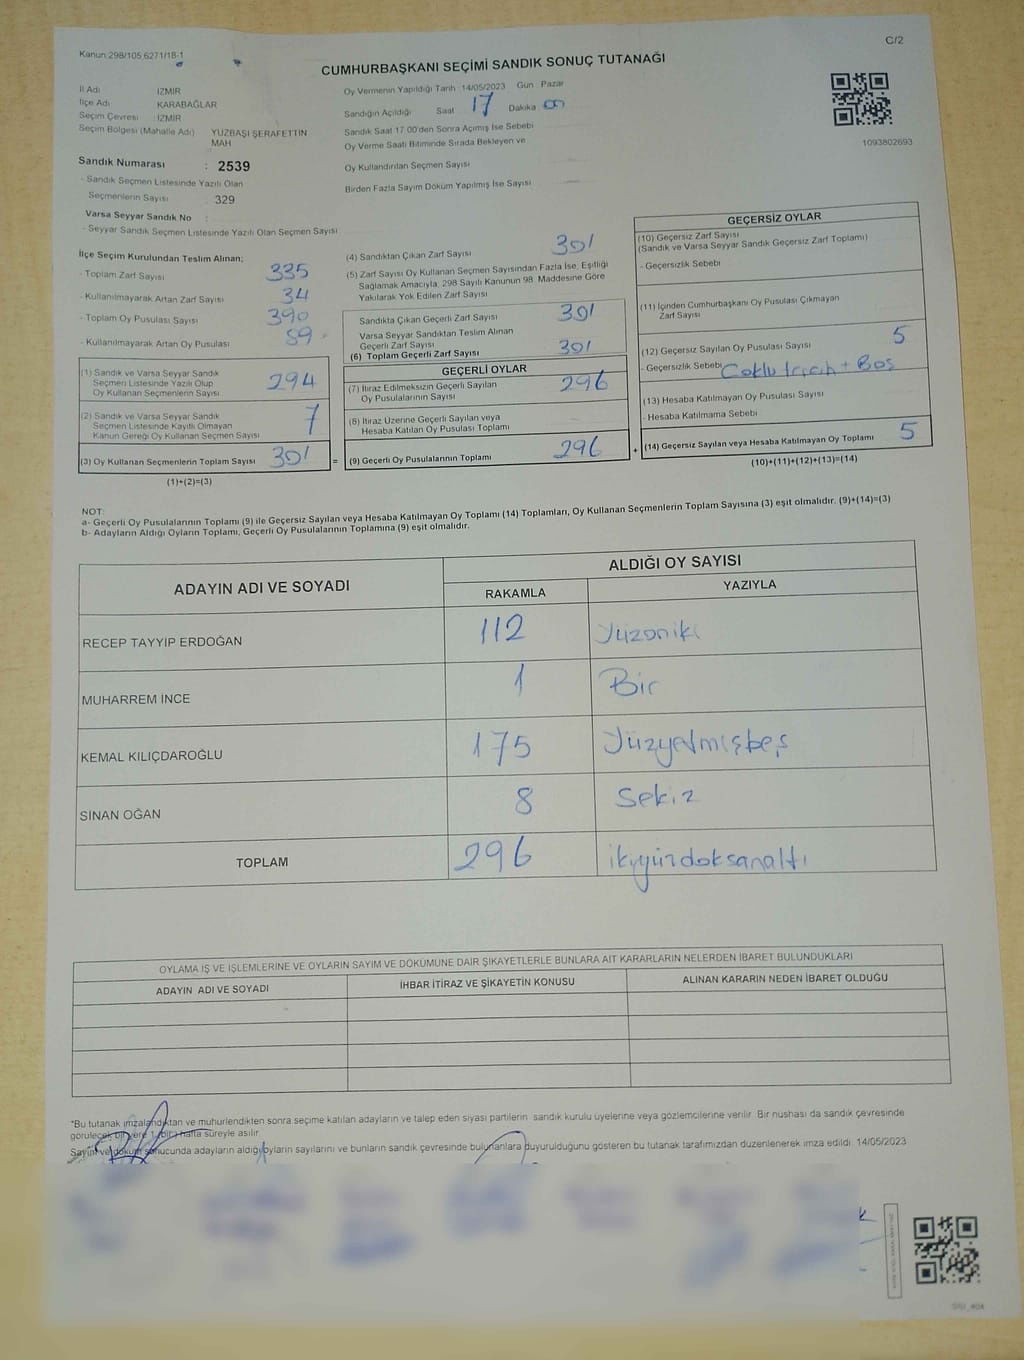 Kanun 298/105,6271/18-1
C/2
CUMHURBAŞKANI SEÇİMİ SANDIK SONUÇ TUTANAĞI
İl Adı : İZMİR
İlçe Adı : KARABAĞLAR
Seçim Çevresi : İZMİR
Seçim Bölgesi (Mahalle Adı) : YÜZBAŞI ŞERAFETTİN MAH
Sandık Numarası : 2539
- Sandık Seçmen Listesinde Yazılı Olan
Seçmenlerin Sayısı : 329
Varsa Seyyar Sandık No :
- Seyyar Sandık Seçmen Listesinde Yazılı Olan Seçmen Sayısı
Oy Vermenin Yapıldığı Tarih : 14/05/2023 Gün : Pazar
Sandığın Açıldığı Saat 17 Dakika 00
Sandık Saat 17.00'den Sonra Açımış İse Sebebi
Oy Verme Saati Bitiminde Sırada Bekleyen ve
Oy Kullandırılan Seçmen Sayısı
Birden Fazla Sayım Döküm Yapılmış İse Sayısı
1093802693
İlçe Seçim Kurulundan Teslim Alınan;
- Toplam Zarf Sayısı 335
- Kullanılmayarak Artan Zarf Sayısı 34
- Toplam Oy Pusulası Sayısı 390
- Kullanılmayarak Artan Oy Pusulası 89
(1) Sandık ve Varsa Seyyar Sandık
Seçmen Listesinde Yazılı Olup
Oy Kullanan Seçmenlerin Sayısı 294
(2) Sandık ve Varsa Seyyar Sandık
Seçmen Listesinde Kayıtlı Olmayan
Kanun Gereği Oy Kullanan Seçmen Sayısı 7
(3) Oy Kullanan Seçmenlerin Toplam Sayısı 301 =
(1)+(2)=(3)
(4) Sandıktan Çıkan Zarf Sayısı 301
(5) Zarf Sayısı Oy Kullanan Seçmen Sayısından Fazla İse, Eşitliği
Sağlamak Amacıyla, 298 Sayılı Kanunun 98. Maddesine Göre
Yakılarak Yok Edilen Zarf Sayısı
Sandıkta Çıkan Geçerli Zarf Sayısı 301
Varsa Seyyar Sandıktan Teslim Alınan
Geçerli Zarf Sayısı
(6) Toplam Geçerli Zarf Sayısı 301
GEÇERLİ OYLAR
(7) İtiraz Edilmeksizin Geçerli Sayılan
Oy Pusulalarının Sayısı 296
(8) İtiraz Üzerine Geçerli Sayılan veya
Hesaba Katılan Oy Pusulası Toplamı
(9) Geçerli Oy Pusulalarının Toplamı 296 +
GEÇERSİZ OYLAR
(10) Geçersiz Zarf Sayısı
(Sandık ve Varsa Seyyar Sandık Geçersiz Zarf Toplamı)
- Geçersizlik Sebebi
(11) İçinden Cumhurbaşkanı Oy Pusulası Çıkmayan
Zarf Sayısı
(12) Geçersiz Sayılan Oy Pusulası Sayısı 5
- Geçersizlik Sebebi
(13) Hesaba Katılmayan Oy Pusulası Sayısı
- Hesaba Katılmama Sebebi
(14) Geçersiz Sayılan veya Hesaba Katılmayan Oy Toplamı 5
(10)+(11)+(12)+(13)=(14)
NOT:
a- Geçerli Oy Pusulalarının Toplamı (9) ile Geçersiz Sayılan veya Hesaba Katılmayan Oy Toplamı (14) Toplamları, Oy Kullanan Seçmenlerin Toplam Sayısına (3) eşit olmalıdır. (9)+(14)=(3)
b- Adayların Aldığı Oyların Toplamı, Geçerli Oy Pusulalarının Toplamına (9) eşit olmalıdır.
ADAYIN ADI VE SOYADI ALDIĞI OY SAYISI
RAKAMLA YAZIYLA
RECEP TAYYIP ERDOĞAN 112 Yüzoniki
MUHARREM İNCE 1 Bir
KEMAL KILIÇDAROĞLU 175 Yüzyetmişbeş
SİNAN OĞAN 8 Sekiz
TOPLAM 296 ikiyüzdoksanaltı
OYLAMA İŞ VE İŞLEMLERİNE VE OYLARIN SAYIM VE DÖKÜMÜNE DAİR ŞİKAYETLERLE BUNLARA AİT KARARLARIN NELERDEN İBARET BULUNDUKLARI
ADAYIN ADI VE SOYADI İHBAR İTİRAZ VE ŞİKAYETİN KONUSU ALINAN KARARIN NEDEN İBARET OLDUĞU
"Bu tutanak imzalandıktan ve mühürlendikten sonra seçime katılan adayların ve talep eden siyasi partilerin sandık kurulu üyelerine veya gözlemcilerine verilir. Bir nüshası da sandık çevresinde
görülecek bir yere 1 (bir) hafta süreyle asılır.
Sayım ve döküm sonucunda adayların aldığı oyların sayılarını ve bunların sandık çevresinde bulunanlara duyurulduğunu gösteren bu tutanak tarafımızdan düzenlenerek imza edildi. 14/05/2023